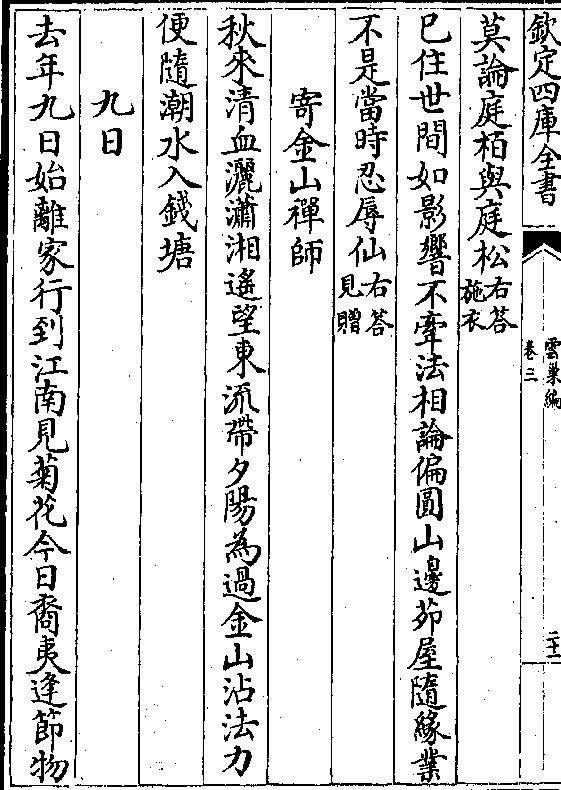 欽定四庫全書
雲巢編
卷三
二十一
莫論庭柏與庭松右答施衣
已住世間如影響不牽法相論偏圓山邊茆屋隨緣業
不是當時忍辱仙右答見贈
寄金山禪師
秋來清血灑瀟湘遙望東流帶夕陽為過金山沾法力
便隨潮水入錢塘
九日
去年九日始離家行到江南見菊花今日裔夷逢節物